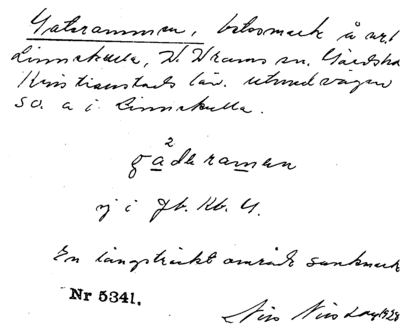 Gaterammen, betesmark å nr 1
Linnekulla, N. Vrams sn. Gärds hd
Kristianstads län. utmed vägen
so. a i Linnekulla.
2
gadɘramɘn
ej i Jb. Kb. U.
En långsträckt område sankmark
Nr 5341.
Nils Nils 1928